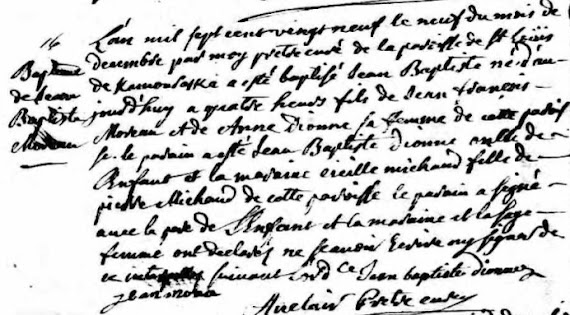 16
Baptême
de Jean
Baptiste
Moreau
L'an mil sept cent vingt neuf le neuf du mois de
decembre par moy prêtre curé de la paroisse de St Louis
de Kamouraska a esté baptisé Jean Baptiste né d'au-
jourd'huy a quatre heures fils de Jean françois
Moreau et de Anne Dionne sa femme de cette parois
se. le parain a esté Jean Baptiste Dionne de
l'Enfant et la maraine michaud fille de
pierre Michaud de cette paroisse le parain a signé
avec le pere de L'Enfant et la maraine et la sage
femme ont declaré ne sçavoir Ecrire de
ce suivant L'ord ce Jean baptiste dionne
jean morau
Auclair Prêtre curé